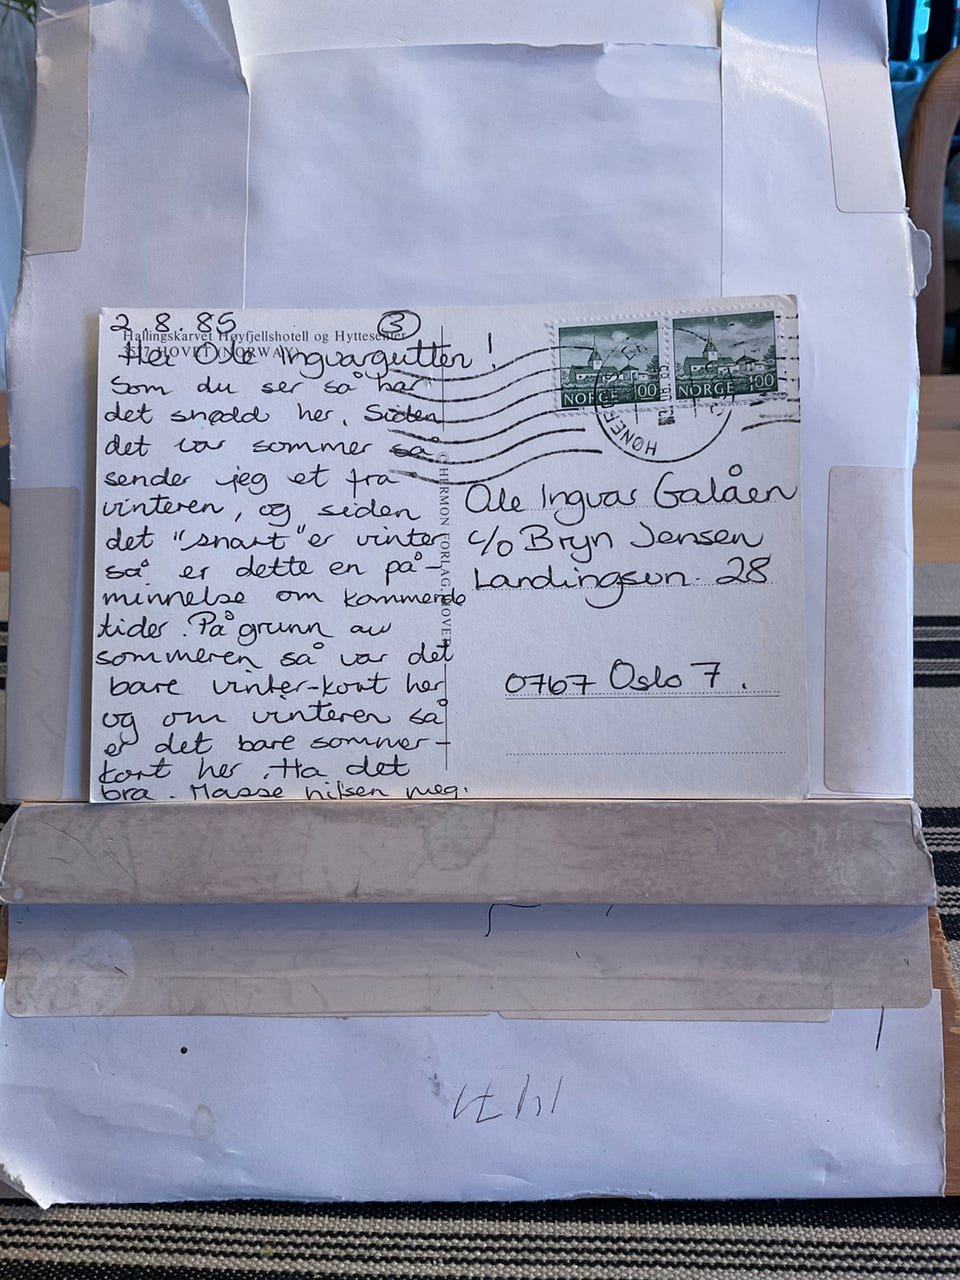 2.8.85 3
Hallingskarvet Høyfjellshotell og Hyttesenter
3577 HOVET (NORWAY)
Hei Ole Ingvargutten!
Som du ser så har
det snødd her. Siden
det var sommer så
sender jeg et fra
vinteren, og siden
det "snart" er vinter
så er dette en på-
minnelse om kommende
tider. På grunn av
sommeren så var det
bare vinter-kort her
og om vinteren så
er det bare sommer-
kort her. Ha det
bra. Masse hilsen meg.
© HERMON FORLAG, HOVET
NORGE 100
NORGE 100
HØNEF
Ole Ingvar Galåen
c/o Bryn Jensen
Landingsvn. 28
0767 Oslo 7.